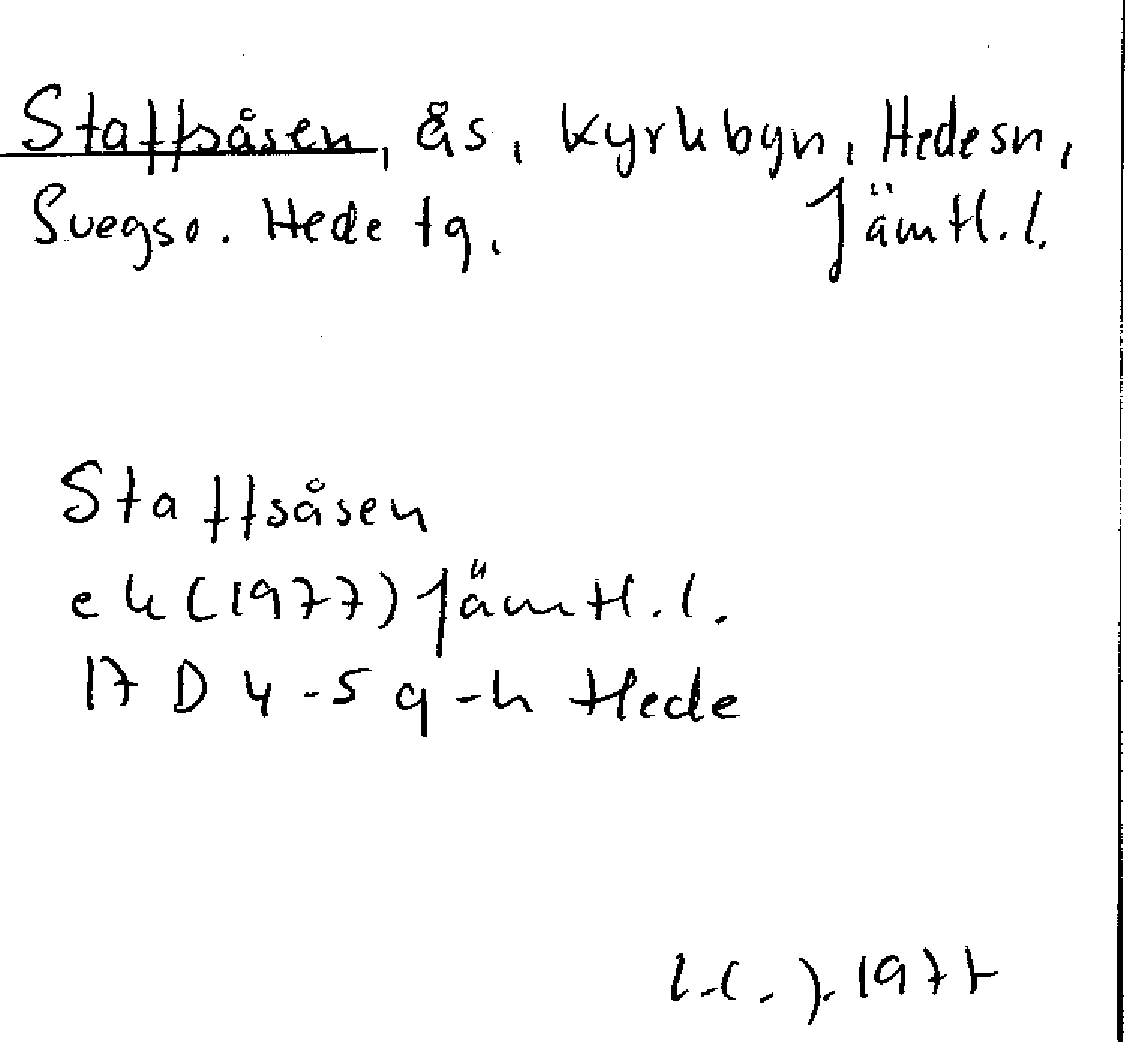 Staffsåsen, ås, kyrkbyn, Hede sn,
Svegs o. Hede tg, Jämtl. l.
Staffsåsen
ek (1977) Jämtl. l.
17 D 4-5 g-h Hede
1977